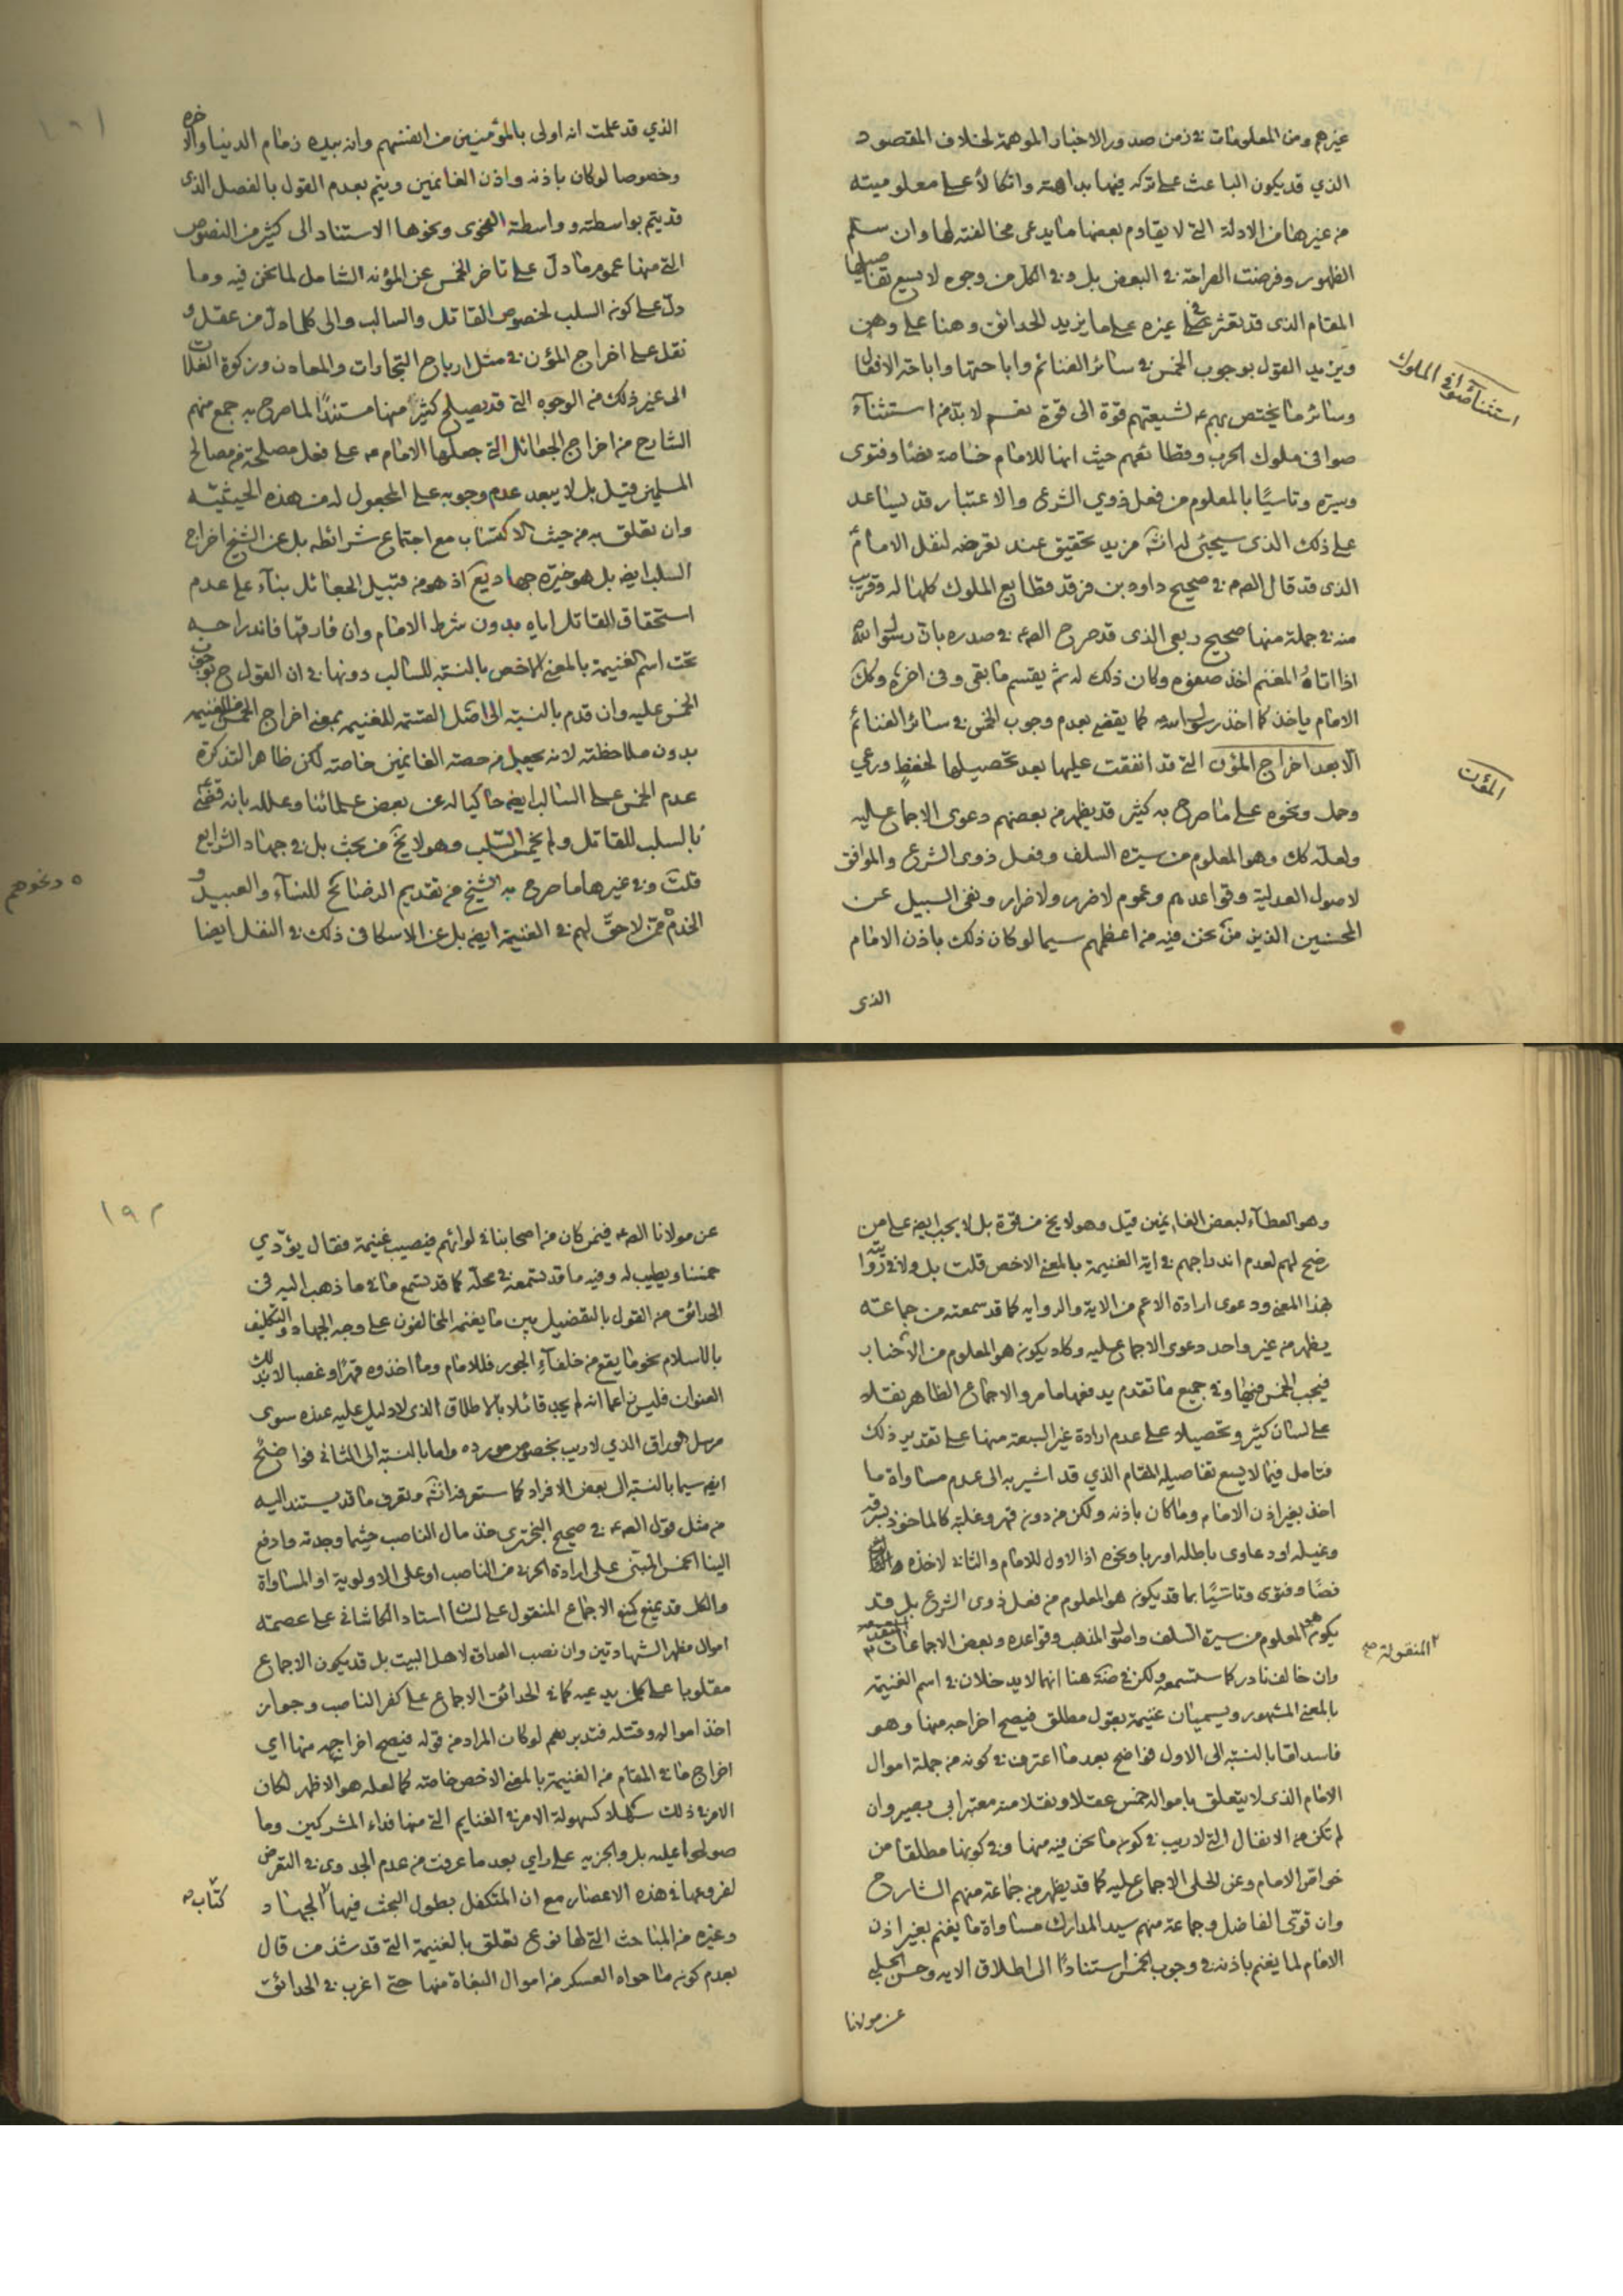 غيرهم ومن المعلومات في زمن صدور الاخبار الموهمة لخلاف المقصود
الذي قد يكون الباعث على تركه فيها بداهته واتكالا على معلوميته
من غيرها من الادلة التي لا يقاوم بعضها ما يدعى مخالفته لها وان سلم
الظهور وفرضت الصراحة في البعض بل وفي الكل من وجوه لا يسع تفاصيلها
المقام الذي قد يعثر في غيره على ما يزيد للحدائق وهنا على وهن
ويزيد القول بوجوب الخمس في سائر الغنائم واباحتها واباحة الانفال
وسائر ما يختص بهم ع لشيعتهم قوة الى قوة نعم لا بد من استثناء
استثناء صوافي الملوك
صوافى ملوك الحرب وقطائعهم حيث انها للامام خاصة نصا وفتوى
وسيرة وتاسيًا بالمعلوم من فعل ذوي الشرع والاعتبار قد يساعد
على ذلك الذى سيجئ له انشاء مزيد تحقيق عند تعرضه لنفل الامام
الذى قد قال الصم في صحيح داود بن فرقد قطايع الملوك كلها له وقريب
منه في جملة منها صحيح ربعى الذى قد صرح الصم في صدره بان رسول الله
اذا اتاه المغنم اخذ صفوه وكان ذلك له ثم يقسم ما بقى وفى اخره وكك
الامام ياخذ كما اخذ رسول الله كما يقضى بعدم وجوب الخمس في سائر الغنائم
الا بعد اخراج المؤن التي قد انفقت عليها بعد تحصيلها لحفظ ورعي
المؤن
وحمل ونحوه على ما صرح به كثير قد يظهر من بعضهم دعوى الاجماع عليه
ولعله كك وهو المعلوم من سيرة السلف وفعل ذوى الشرع والموافق
لاصول العدلية وقواعدهم وعموم لا ضرر ولا ضرار ونفى السبيل عن
المحسنين الذين من نحن فيه من اعظمهم سيما لو كان ذلك باذن الامام
الذى
الذي قد علمت انه اولى بالمؤمنين من انفسهم وان بيده زمام الدنيا والاخره
وخصوصا لو كان باذنه واذن الغانمين ويتم بعدم القول بالفصل الذى
قد يتم بواسطته وواسطة الفحوى ونحوها الاستناد الى كثير من النصوص
التي منها عموم ما دل على تاخر الخمس عن المؤنه الشامل لما نحن فيه وما
دل على كون السلب لخصوص القاتل والسالب والى كلما دل من عقل و
نقل على اخراج المؤن في مثل ارباح التجارات والمعادن وزكوة الغلات
الى غير ذلك من الوجوه التي قد يصلح كثير منها مستندًا لما صرح به جمع منهم
الشارح من اخراج الجعائل التي جعلها الامام ع على فعل مصلحة من مصالح
المسلمين قيل بل لا يبعد عدم وجوبه على المجعول له من هذه الحيثيته
وان تعلق به من حيث الاكتساب مع اجتماع شرائطه بل عن الشيخ اخراج
السلب ايضه بل هو خيرة جهاد يع اذ هو من قبيل الجعائل بناء على عدم
استحقاق القاتل اياه بدون شرط الامام وان فارقها فاندراجه
تحت اسم الغنيمة بالمعنى الاخص بالنسبة للسالب دونها في ان القول ح بوجوب
الخمس عليه وان قدم بالنسبة الى اصل القسمة للغنيمه بمعنى اخراج الخمس من الغنيمه
بدون ملاحظته لانه يجعل من حصة الغانمين خاصته لكن ظاهر التذكرة
عدم الخمس على السالب ايضه حاكيا له عن بعض علمائنا وعلله بانه قضى
بالسلب للقاتل ولم يخمس السلب وهو لا يخ من بحث بل في جهاد الشرايع و
قلت وفي غيرها ما صرح به الشيخ من تقديم الرضائخ للنساء والعبيد
ه ونحوهم
الخدم ممن لا حق لهم في الغنيمة ايضه بل عن الاسكافى ذلك في النفل ايضا
وهو العطاء لبعض الغانمين قيل وهو لا يخ من قوة بل لا يجب ايضه على من
رضخ لهم لعدم اندراجهم في اية الغنيمة بالمعنى الاخص قلت بل ولا في رواية
بهذا المعنى ودعوى ارادة الاعم من الاية والروايه كما قد سمعته من جماعته
يظهر من غير واحد دعوى الاجماع عليه وكاد يكون هو المعلوم من الاخبار
فيجب الخمس فيها وفي جميع ما تقدم يدفعها ما مر والاجماع الظاهر نقلا
على لسان كثير وتحصيلا على عدم ارادة غير السبعة منها على تقدير ذلك
فتامل فيما لا يسع تفاصيله المقام الذي قد اشير به الى عدم مساواة ما
اخذ بغير اذن الامام وما كان باذنه ولكن من دون قهر وغلبه كالماخوذ بسرقة
وغيله او دعاوى باطله او ربا ونحوه اذ الاول للامام والثاني لاخذه
نصًا وفتوى وتاسيًا بما قد يكون هو المعلوم من فعل ذوى الشرع بل قد
يكون هو المعلوم من سيرة السلف واصول المذهب وقواعده وبعض الاجماعات
المنقولة صح
وان خالف نادر كما ستسمعه ولكن في هنا انهما لا يدخلان في اسم الغنيمه
بالمعنى المشهور ويسميان غنيمة بقول مطلق فيصح اخراجه منها وهو
فاسد اما بالنسبة الى الاول فواضح بعد ما اعترف في كونه من جملة اموال
الامام الذى لا يتعلق باموال خمس عقلا ونقلا منه معتبر ابى بصير وان
لم تكن من الانفال التي لا ريب في كون ما نحن فيه منها وفي كونها مطلقا من
خواص الامام وعن الحلى الاجماع عليه كما قد يظهر من جماعة منهم الشارح
وان قوى الفاضل وجماعة منهم سيد المدارك مساواة ما يغنم بغير اذن
الامام لما يغنم باذنه في وجوب الخمس استنادًا الى اطلاق الايه وحسن الحلبى
عن مولانا
١٩٢
عن مولانا الصم فيمن كان من اصحابنا في لوائهم فيصيب غنيمة فقال يؤدي
خمسنا ويطيب له وفيه ما قد يستمعه في محله كما قد يستمع ما في ما ذهب اليه فى
الحدائق من القول بالتفضيل بين ما يغنمه المخالفون على وجه الجهاد والتكليف
بالاسلام نحو ما يقع من خلفاء الجور فللامام وما اخذوه قهرًا وغصبا لا بذلك
العنوان فليس زاعما انه لم يجد قائلا بالاطلاق الذى لا دليل عليه عنده سوى
مرسل الوراق الذي لا ريب بخصوص مورده واما بالنسبة الى الثاني فواضح
ايضه سيما بالنسبة الى بعض الافراد كما ستعرفه انشاء وتعرف ما قد يستند اليه
من مثل قول الصم في صحيح البخترى خذ مال الناصب حيثما وجدته وادفع
الينا الخمس المبتنى على ارادة الحربى من الناصب او على الاولوية او المساواة
والكل قد يمنع كمنع الاجماع المنقول على لسان استاد الكاشانى على عصمة
اموال مظهر الشهادتين وان نصب العداوة لاهل البيت بل قد يكون الاجماع
مقلوبا على كل يدعيه كما في الحدائق الاجماع على كفر الناصب وجواز
اخذ امواله وقتله فتدبر نعم لو كان المراد من قوله فيصح اخراجه منها اي
اخراج ما في المقام من الغنيمة بالمعنى الاخص خاصته كما لعله هو الاظهر لكان
الامر في ذلك سهلا كسهولة الامر في الغنايم التي منها فداء المشركين وما
صولحوا عليه بل والجزيه على راي بعد ما عرفت من عدم الجدوى في التعرض
لفروعها في هذه الاعصار مع ان المتكفل بطول البحث فيها الجهاد
كتاب صح
وغيره من المباحث التي لها نوع تعلق بالغنيمة التي قد شذ من قال
بعدم كون ما حواه العسكر من اموال البغاة منها حتى اغرب في الحدائق